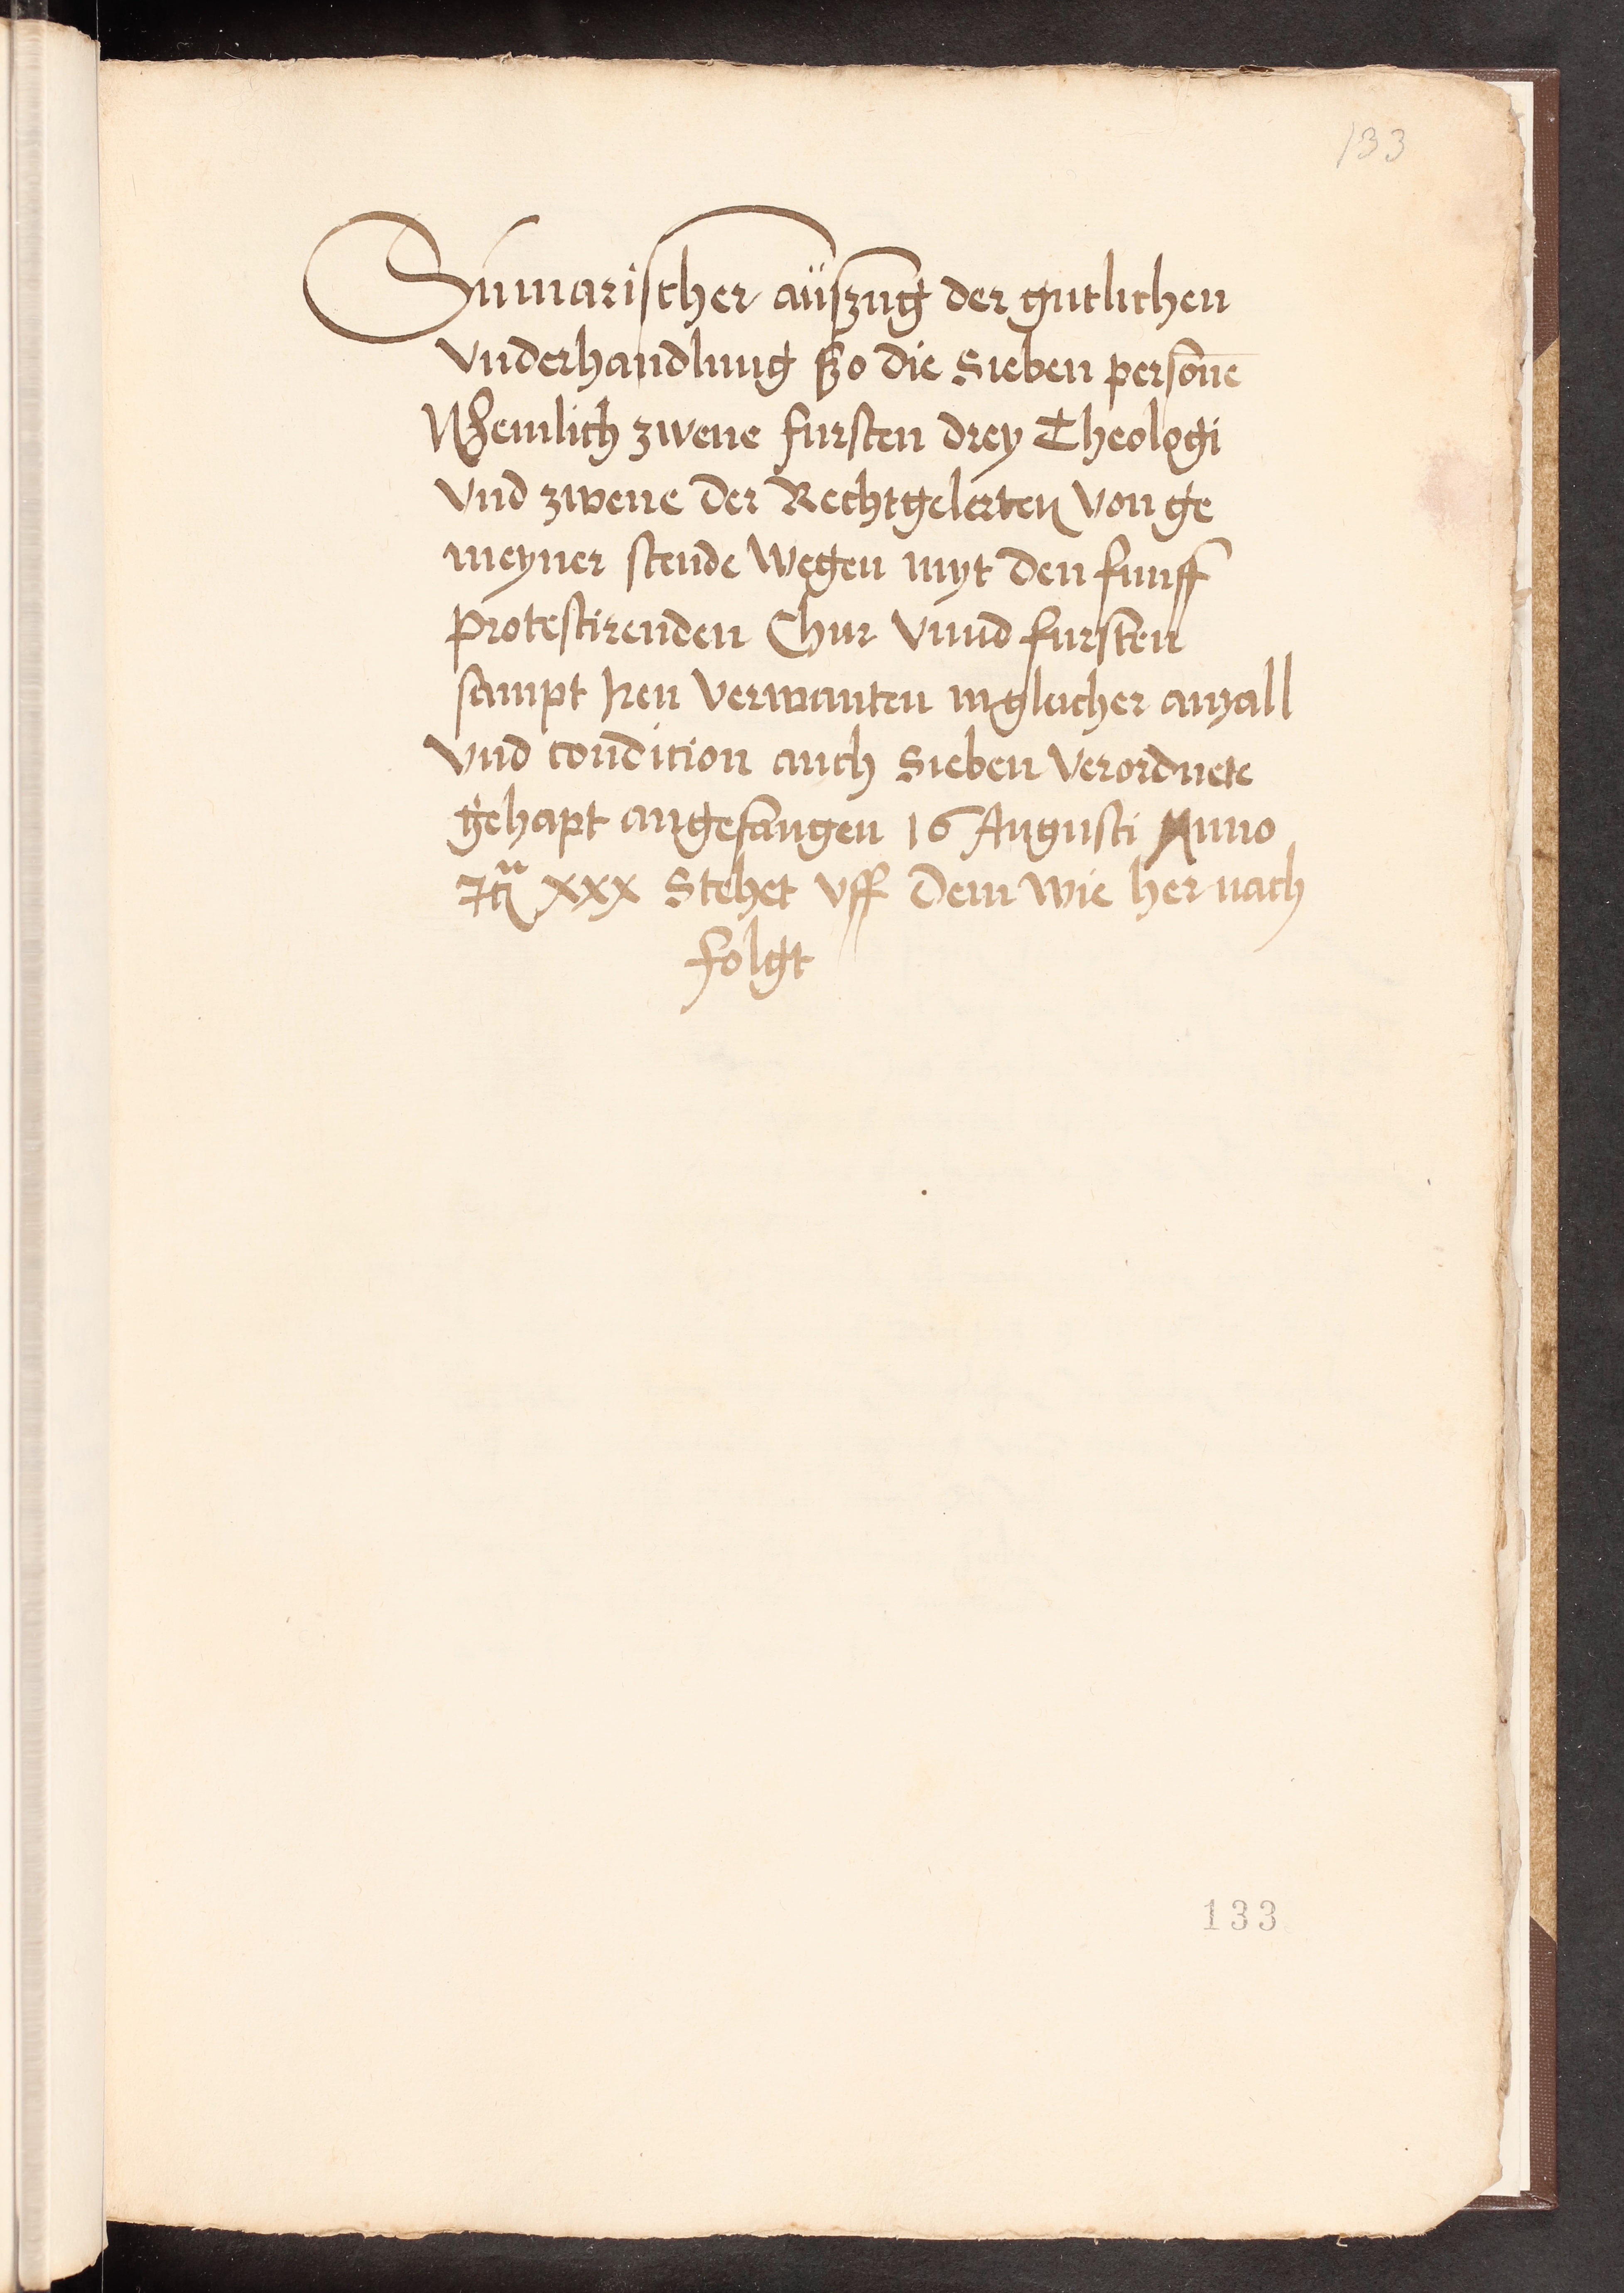 133
Sumarischer auszug der gutlichen
Vnderhandlung ßo die Sieben persone
Nemlich zwene fursten drey Theologi
Vnd zwene der Rechtgelerten Von ge
meyner stende wegen myt den funff
Protestirenden Chur Vnnd fursten
sampt Iren Verwanten ingleicher anzall
Vnd condition auch Sieben Verordnete
gehapt angefangen 16 Augusti Anno
XXX Stehet Vff dem wie her nach
folgt
133